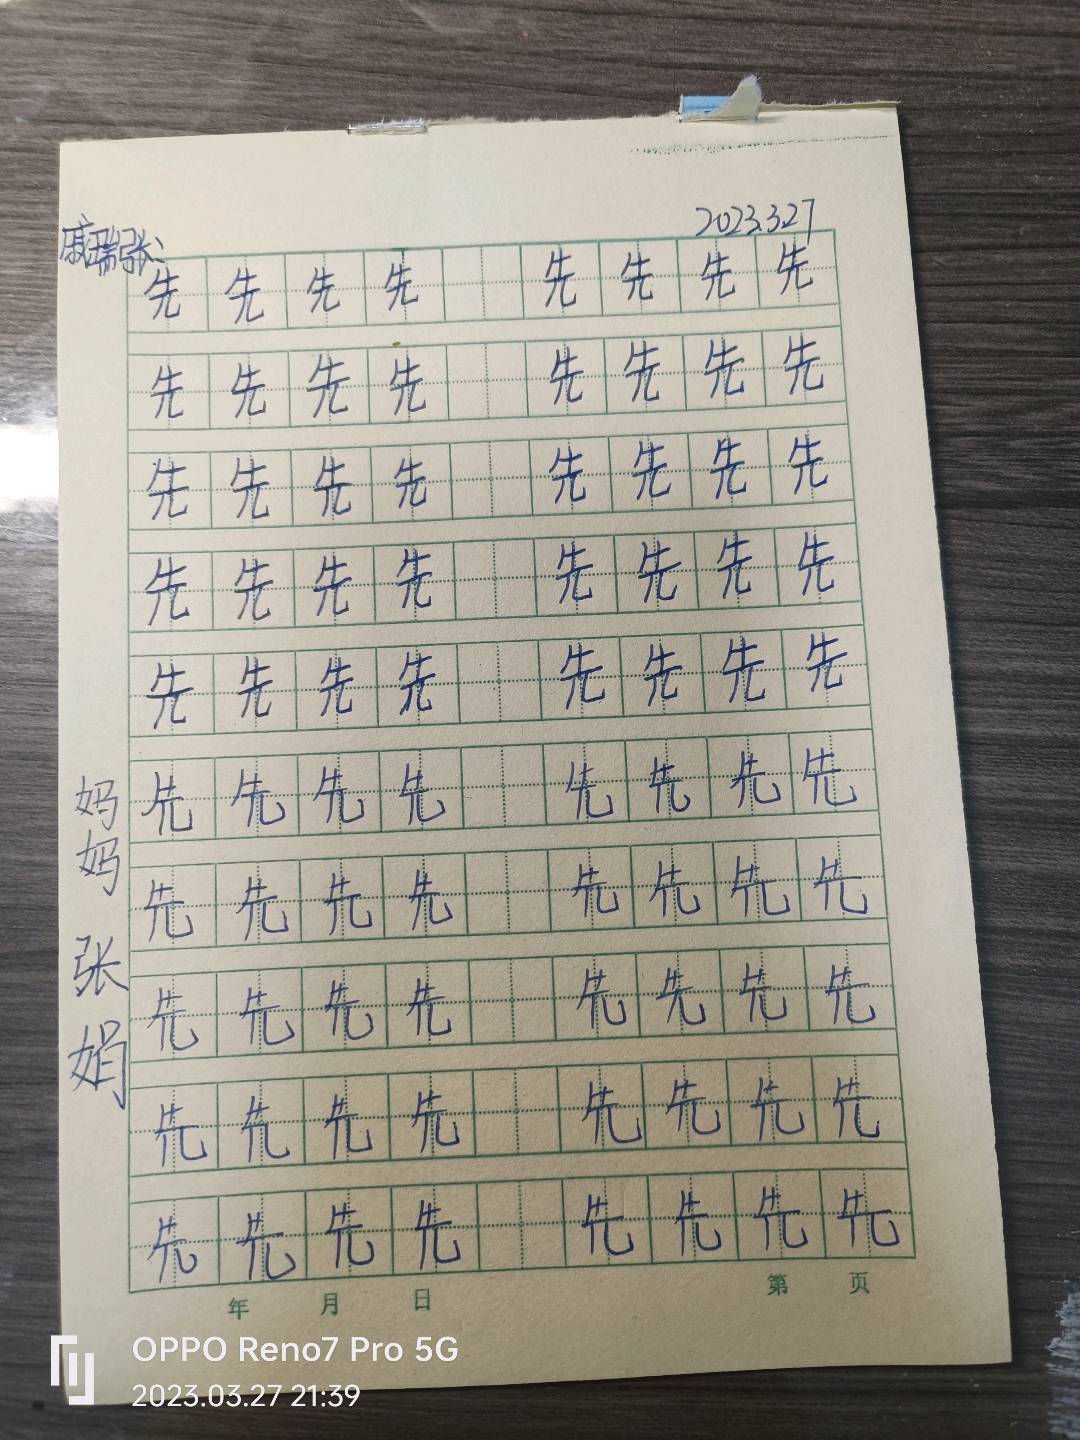 2023.3.27
戚瑞张
先先先先 先先先先
先先先先 先先先先
先先先先 先先先先
先先先先 先先先先
先先先先 先先先先
先先先先 先先先先
先先先先 先先先先
先先先先 先先先先
先先先先 先先先先
先先先先 先先先先
妈妈 张娟
年 月 日 第 页
OPPO Reno7 Pro 5G
2023.03.27 21:39